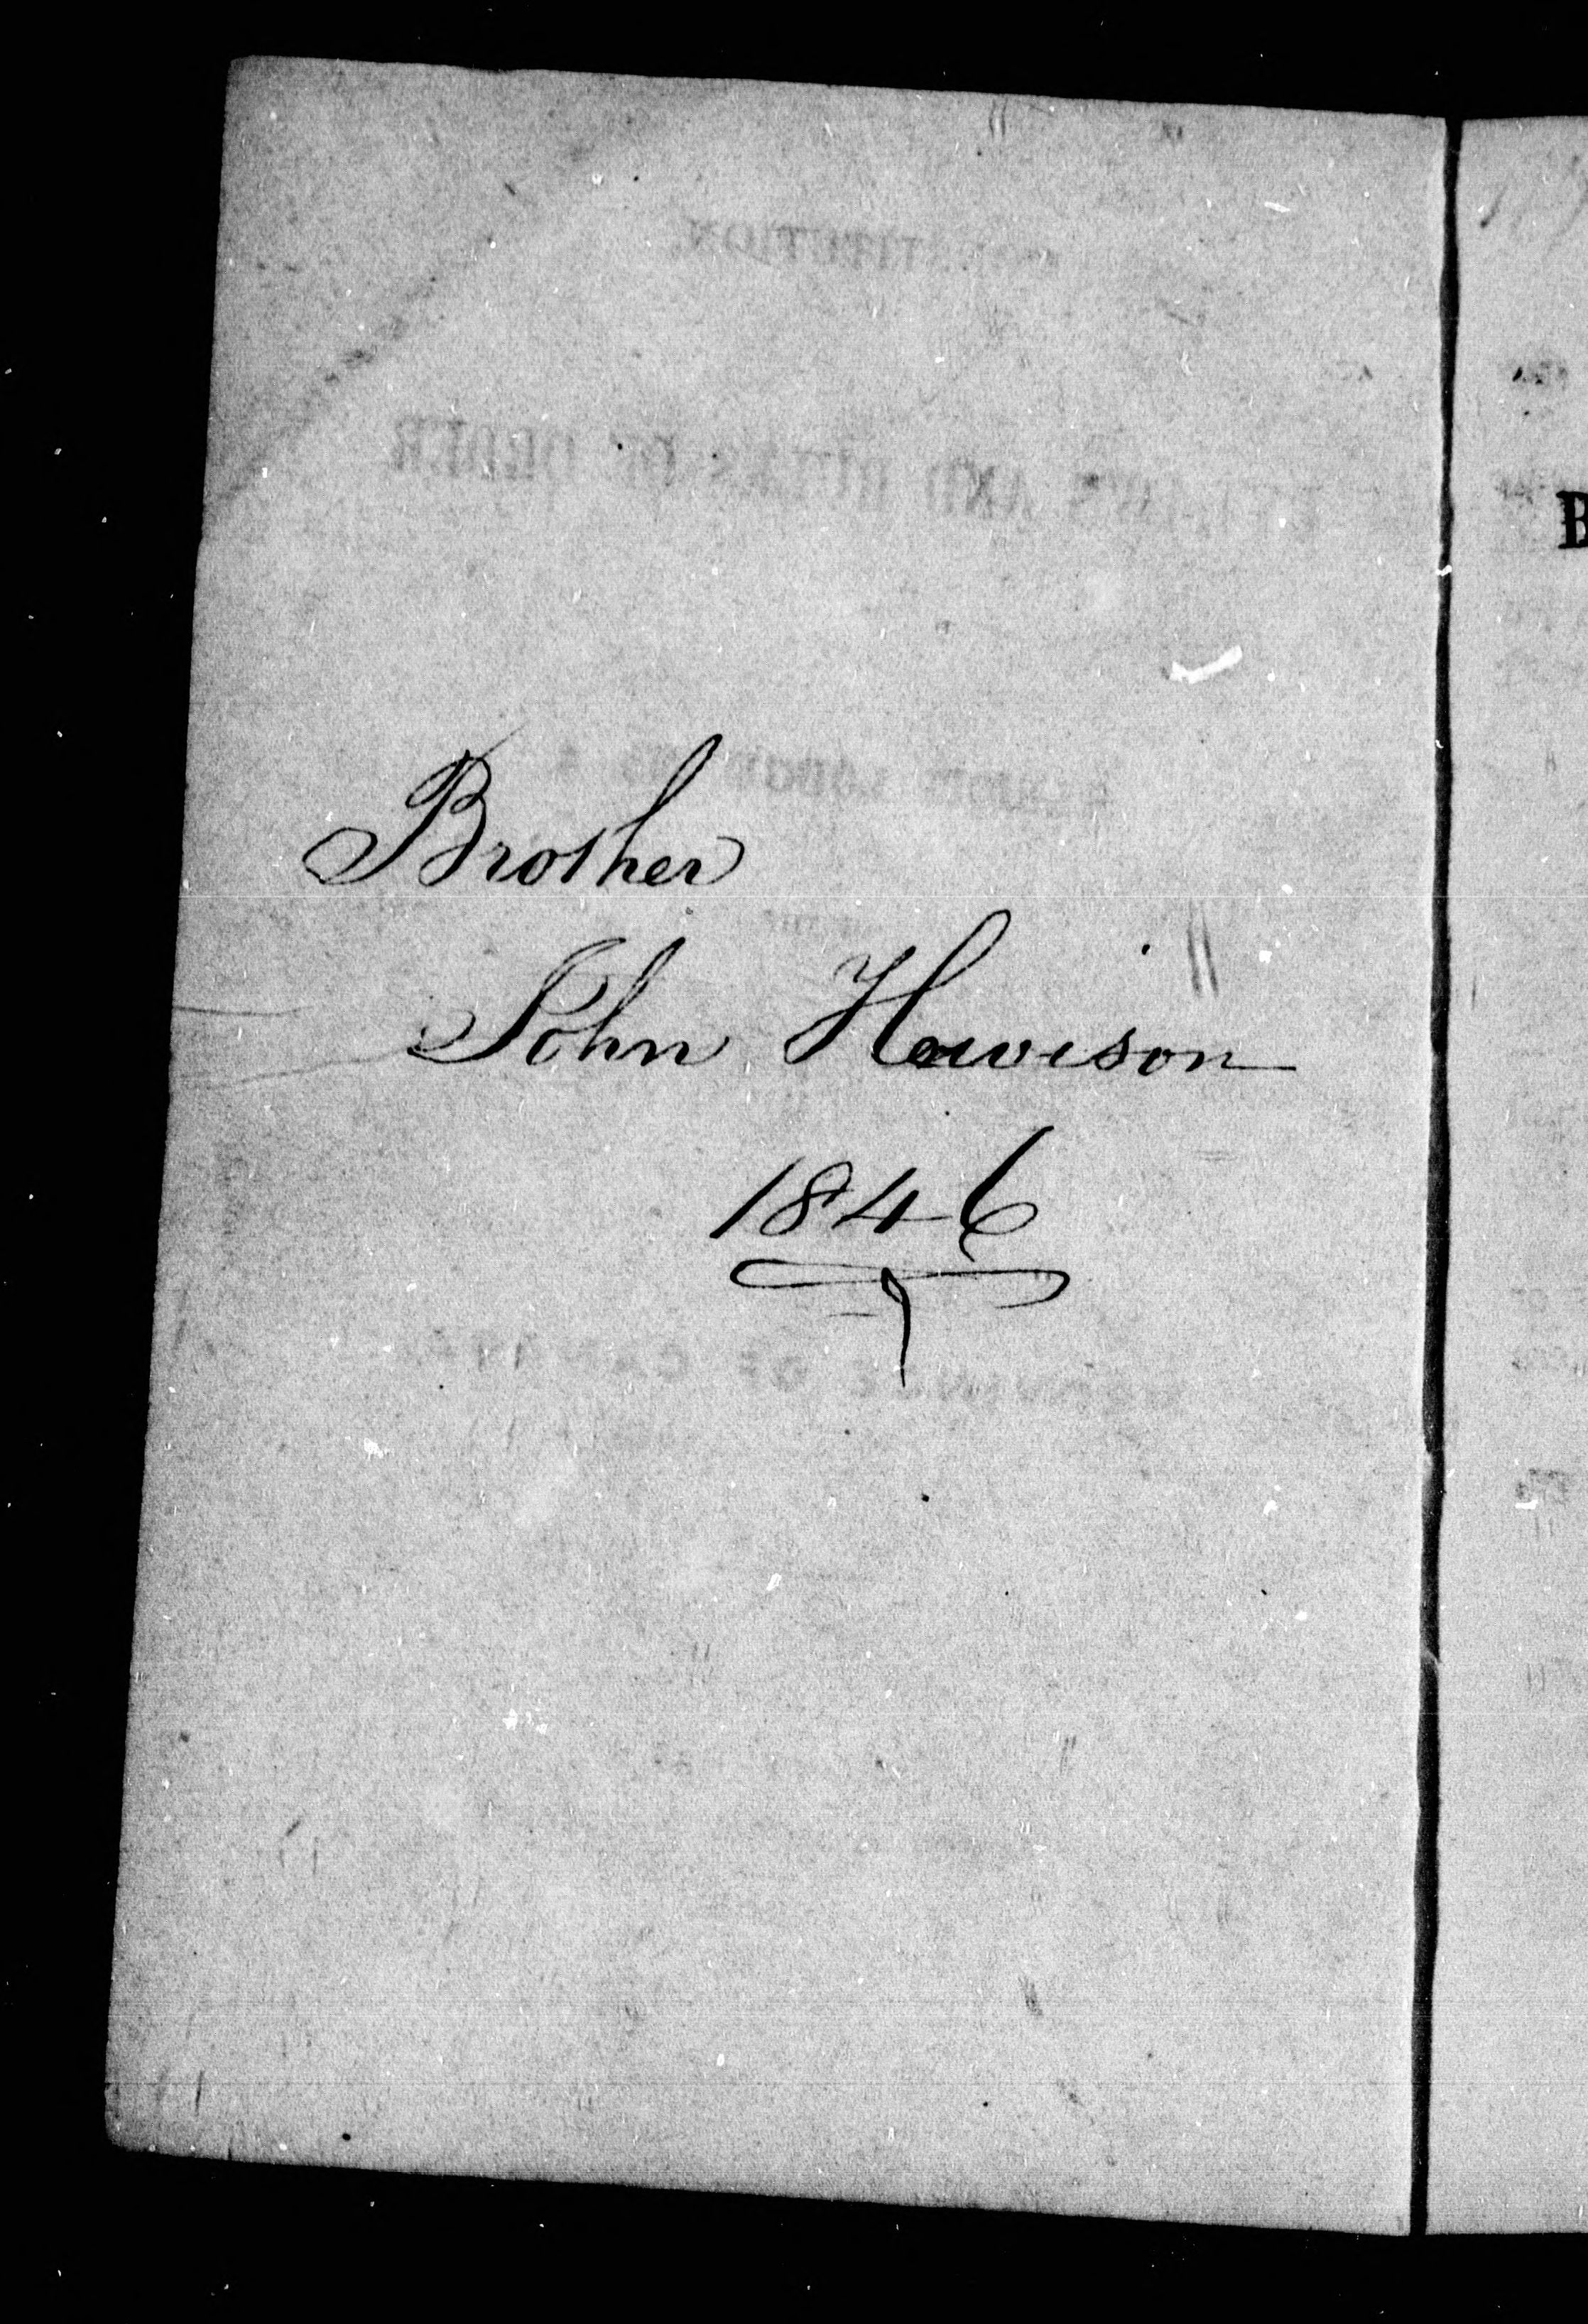 Brother
John Howison
1846
B